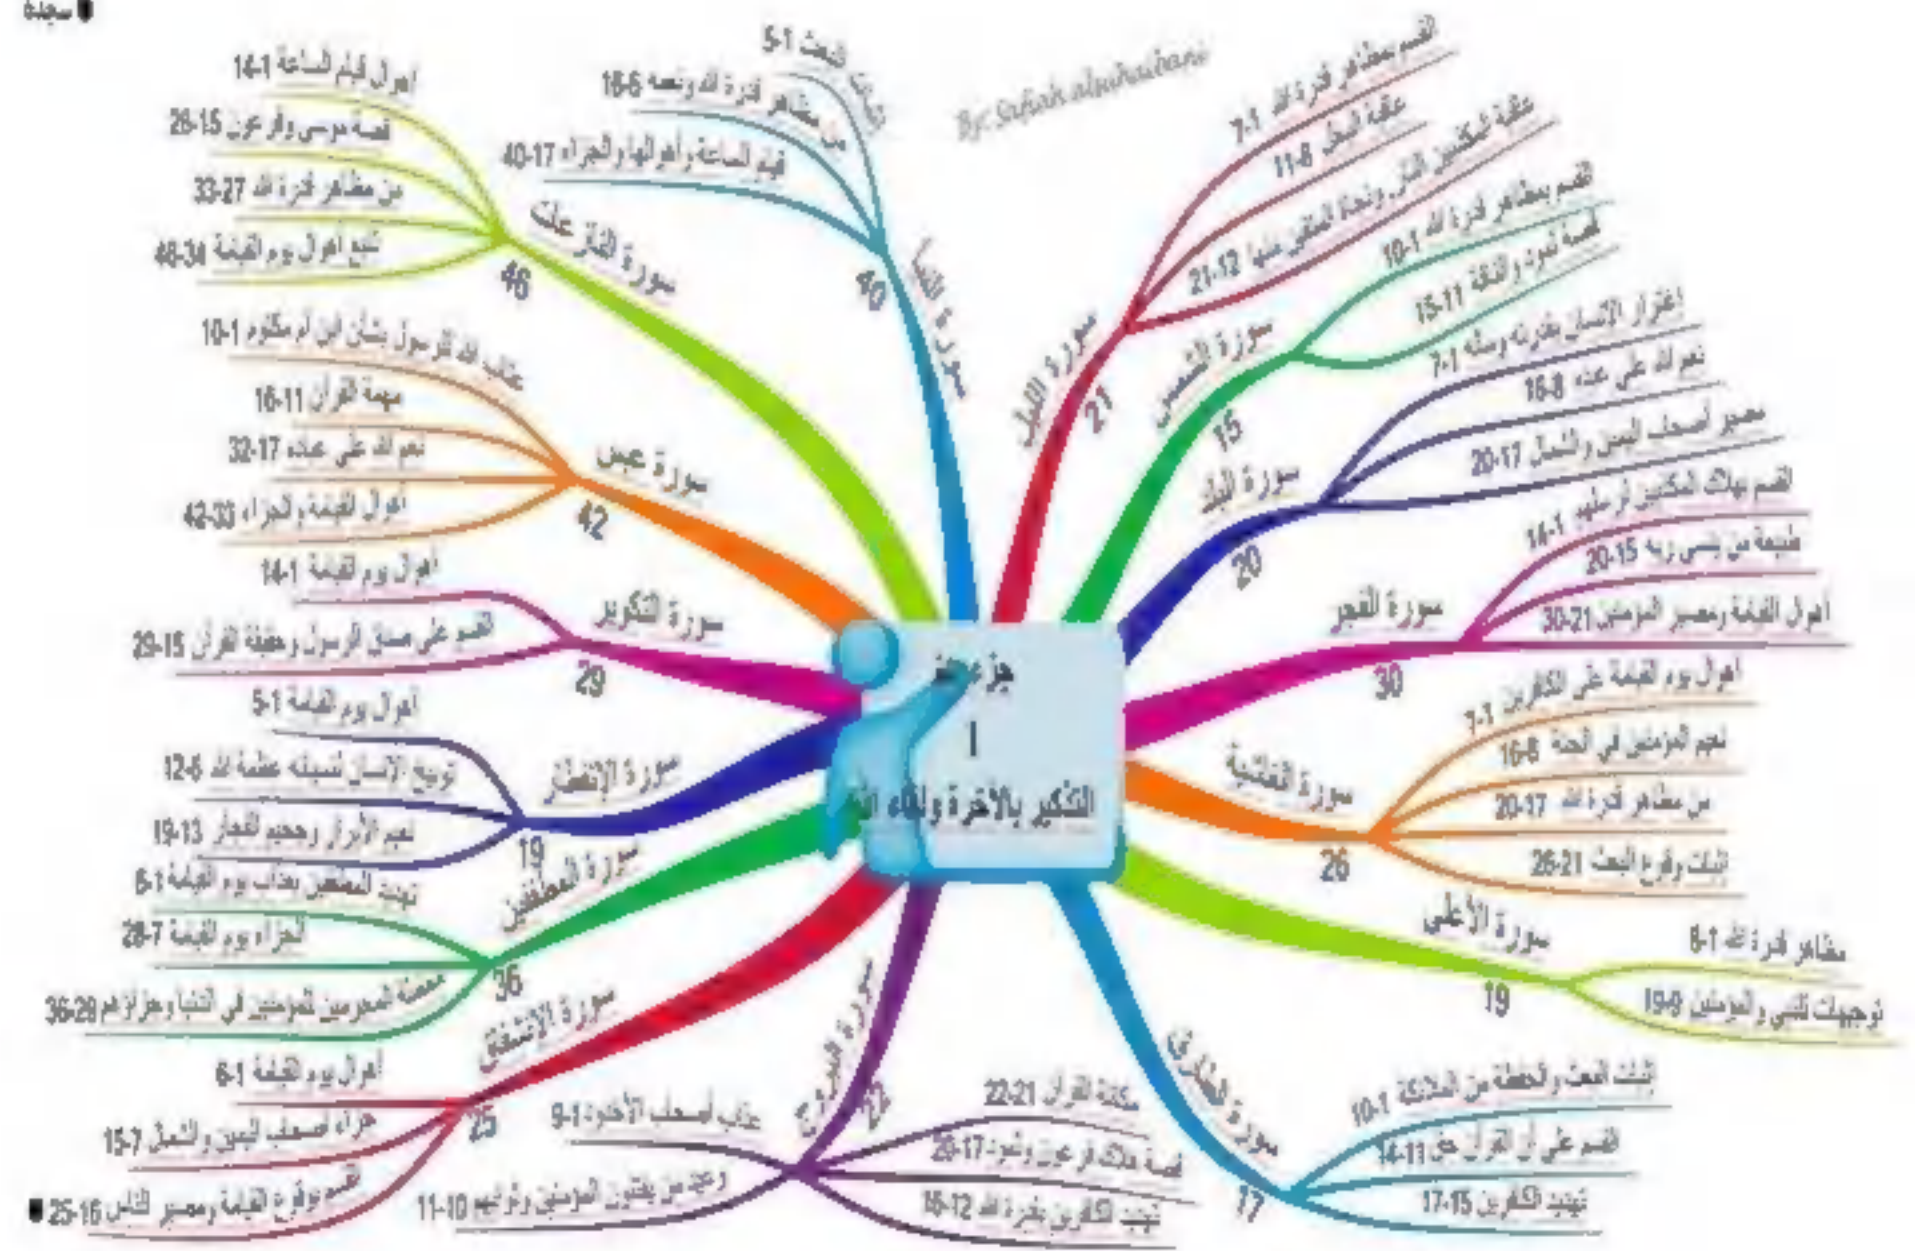 سجدة
By: Safiah alsuhaibani
جزء عم
1
التذكير بالآخرة ولقاء الله
سورة النبأ
40
إثبات البعث 1-5
من مظاهر قدرة الله ونعمه 6-16
قيام الساعة وأهوالها والجزاء 17-40
سورة النازعات
46
أهوال قيام الساعة 1-14
قصة موسى وفرعون 15-26
من مظاهر قدرة الله 27-33
تتبع أهوال يوم القيامة 34-46
سورة عبس
42
عتاب الله للرسول بشأن ابن أم مكتوم 1-10
مهمة القرآن 11-16
نعم الله على عباده 17-32
أهوال القيامة والجزاء 33-42
سورة التكوير
29
أهوال يوم القيامة 1-14
القسم على صدق الرسول وحقيقة القرآن 15-29
سورة الانفطار
19
أهوال يوم القيامة 1-5
توبيخ الإنسان لنسيانه عظمة الله 6-12
نعيم الأبرار وجحيم الفجار 13-19
سورة المطففين
36
تهديد المطففين بعذاب يوم القيامة 1-6
الجزاء يوم القيامة 7-28
معاملة المجرمين للمؤمنين في الدنيا وجزاؤهم 29-36
سورة الانشقاق
25
أهوال يوم القيامة 1-6
جزاء أصحاب اليمين والشمال 7-15
القسم بوقوع القيامة ومصير الناس 16-25
سورة البروج
22
عذاب أصحاب الأخدود 1-9
وعيد من يفتنون المؤمنين وثوابهم 10-11
تهديد الكافرين بقدرة الله 12-16
قصة هلاك فرعون وثمود 17-20
مكانة القرآن 21-22
سورة الطارق
17
إثبات البعث والحفظة من الملائكة 1-10
القسم على أن القرآن حق 11-14
تهديد الكافرين 15-17
سورة الأعلى
19
مظاهر قدرة الله 1-8
توجيهات للنبي والمؤمنين 9-19
سورة الغاشية
26
أهوال يوم القيامة على الكافرين 1-7
نعيم المؤمنين في الجنة 8-16
من مظاهر قدرة الله 17-20
إثبات وقوع البعث 21-26
سورة الفجر
30
القسم بهلاك المكذبين لرسلهم 1-14
طبيعة من ينسى ربه 15-20
أهوال القيامة ومصير المؤمنين 21-30
سورة البلد
20
اغترار الإنسان بقدرته وماله 1-7
نعم الله على عبده 8-16
مصير أصحاب اليمين والشمال 17-20
سورة الشمس
15
القسم بمظاهر قدرة الله 1-10
قصة ثمود والناقة 11-15
سورة الليل
21
القسم بمظاهر قدرة الله 1-7
عاقبة البخل 8-11
عاقبة المكذبين النار ونجاة المتقين منها 12-21